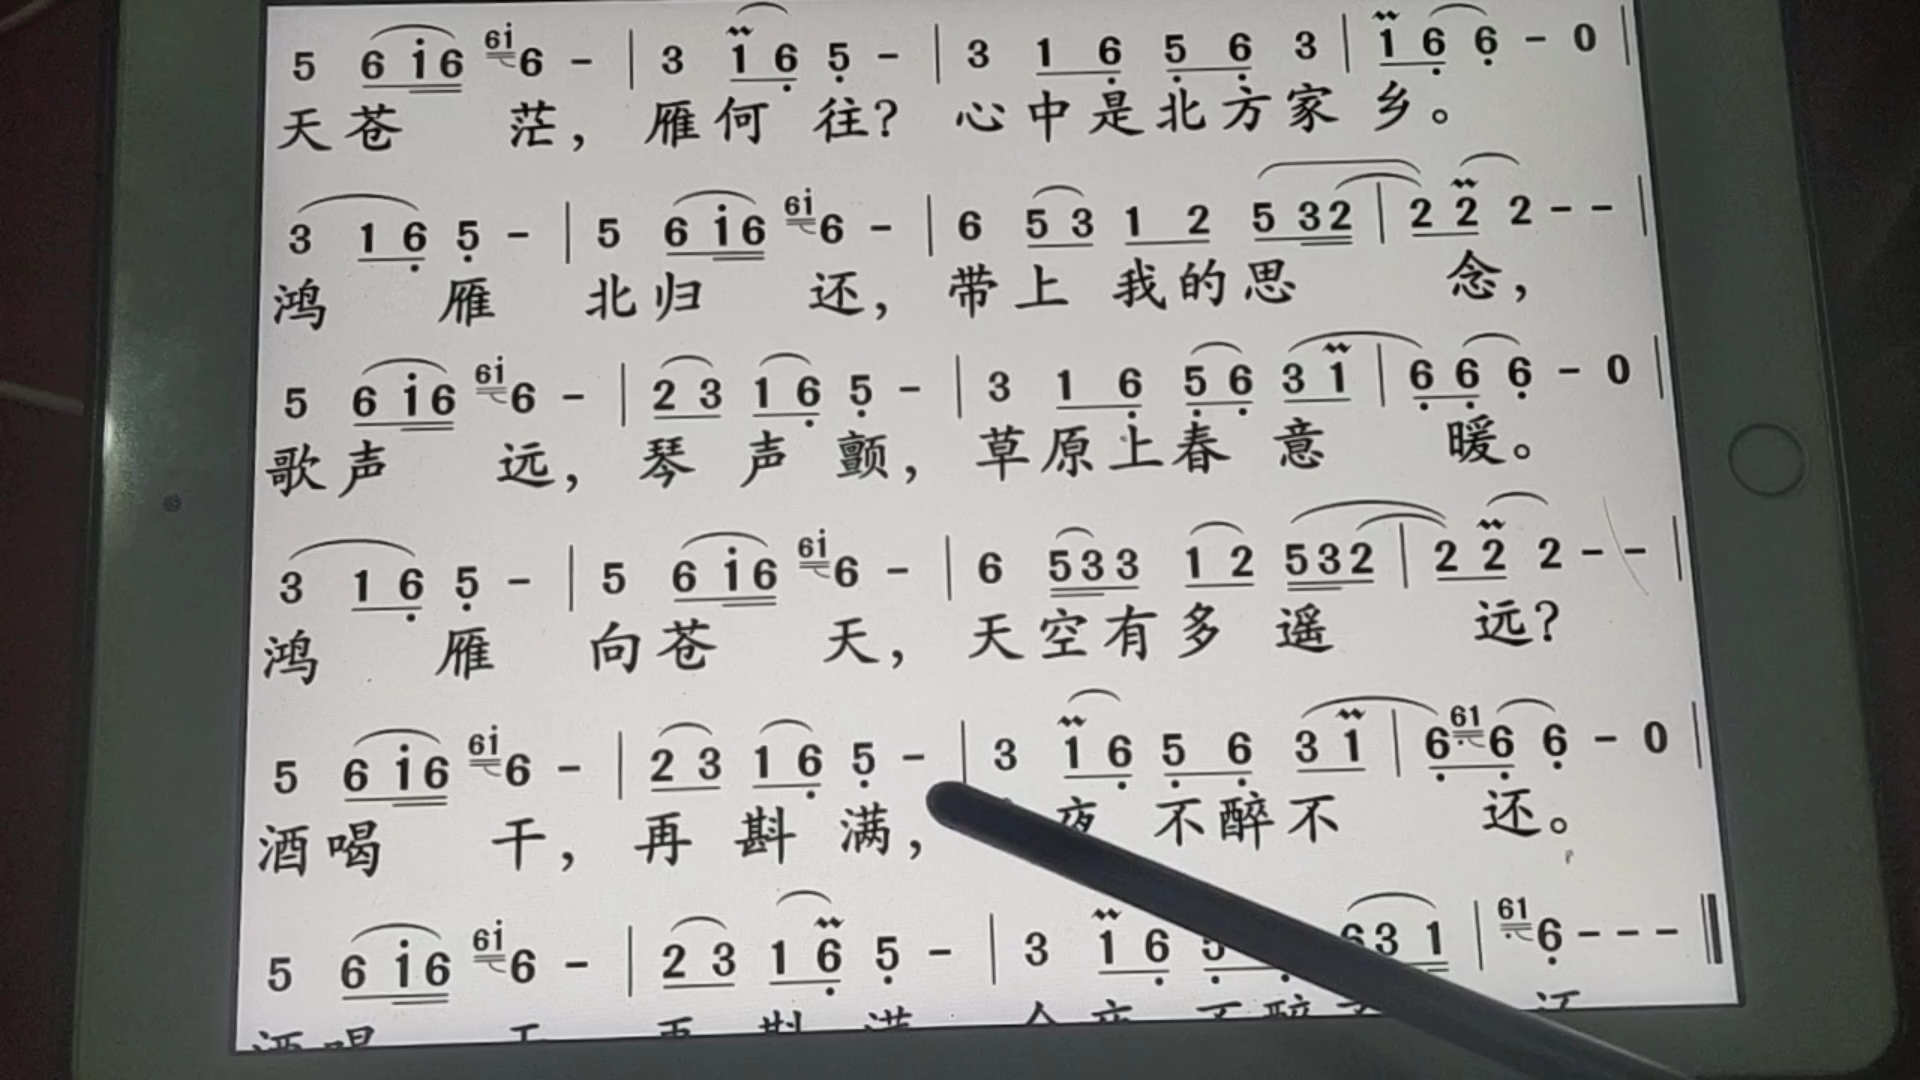 5 6 i 6 6i 6 - | 3 1 6 5 - | 3 1 6 5 6 3 | 1 6 6 - 0 |
天苍 茫，雁何 往？心中是北方家 乡。
3 1 6 5 - | 5 6 i 6 6i 6 - | 6 5 3 1 2 5 3 2 | 2 2 2 - - |
鸿 雁 北归 还，带上 我的思 念，
5 6 i 6 6i 6 - | 2 3 1 6 5 - | 3 1 6 5 6 3 1 | 6 6 6 - 0 |
歌声 远，琴 声 颤，草原上春 意 暖。
3 1 6 5 - | 5 6 i 6 6i 6 - | 6 5 3 3 1 2 5 3 2 | 2 2 2 - - |
鸿 雁 向苍 天，天空有多 遥 远？
5 6 i 6 6i 6 - | 2 3 1 6 5 - | 3 1 6 5 6 3 1 | 6 61 6 6 - 0 |
酒喝 干，再 斟 满， 夜 不醉不 还。
5 6 i 6 6i 6 - | 2 3 1 6 5 - | 3 1 6 5 6 3 1 | 61 6 - - - ‖
酒喝 干 再 斟 满 今夜 不醉 还